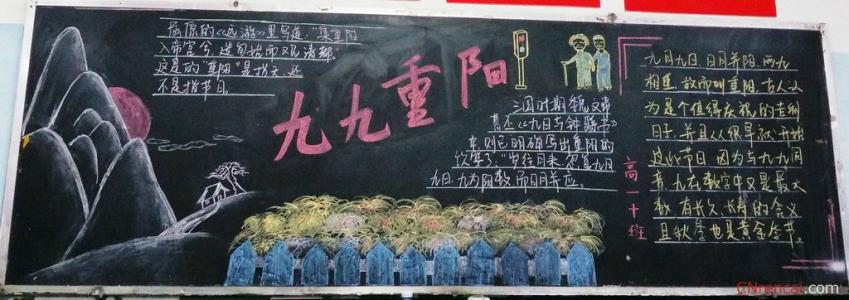 屈原的《远游》里写道:“集重阳
入帝宫兮,造旬始而观清都”
这里的“重阳”是指天,还
不是指节日。
九九重阳
三国时期魏文帝
曹丕《九日与钟繇书》
中,则已明确写出重阳的
饮宴了:“岁往月来,忽复九月
九日,九为阳数,而日月并应。
九月九日,日月并阳,两九
相重,故而叫重阳,古人认
为是个值得庆祝的吉利
日子,并且从很早就开始
过此节日,因为与九九同
音,九在数字中又是最大
数,有长久、长寿的含义
且秋季也是黄金季节。
高一十班
CNrencai.com